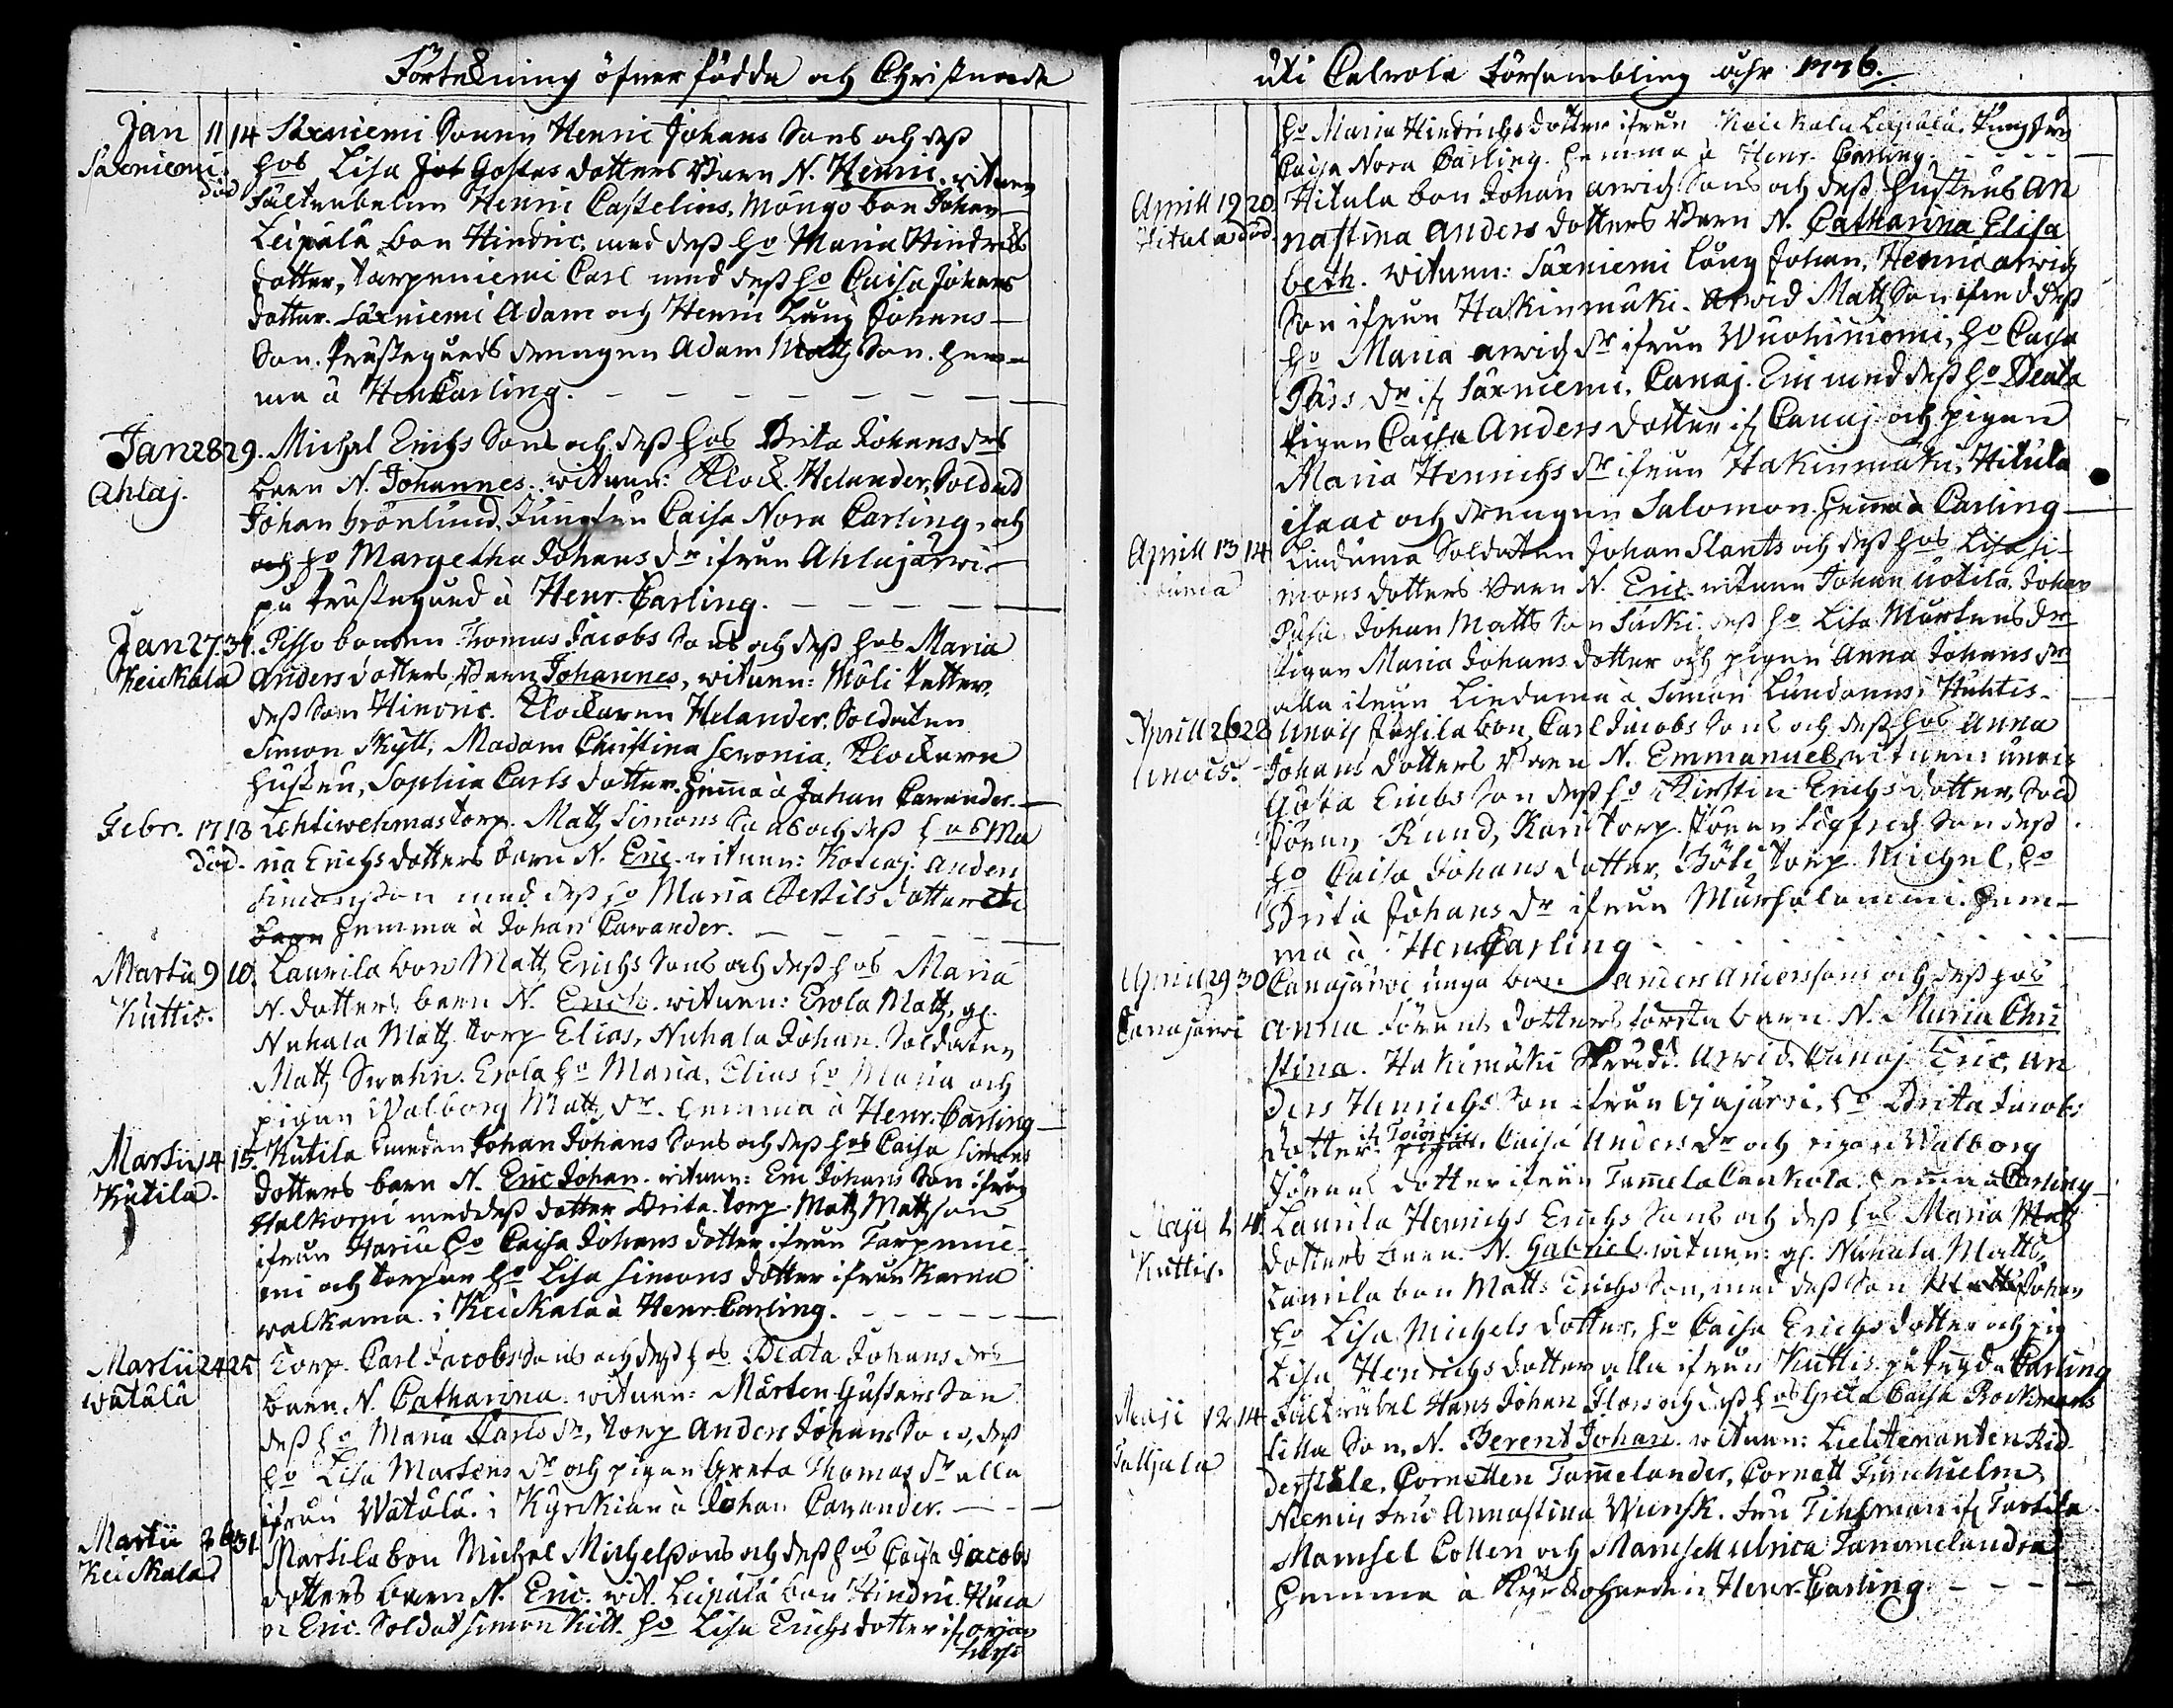 Förtekning öfver födda och Christnade
Jan 11 14 Säxniemi Sonen Henric Johans Sons och deß
Säxniemi hos Lisa Jot Göstas dotters Barn N. Henric. witnen
död Fältväbelen Henric Caßelius, Mångo bon Johan
Leipälä bon Hindric, med deß ho Maria Hindrichs
dotter, Tarpeniemi Carl med deß ho Caisa Johans
dotter. Säxniemi Adam och Henric Lång Johans
Son. Prästegårds drengen Adam Matts Son. hem-
ma à Hen Carling.
Jan 28 29. Michel Erichs Sons och deß hos Brita Johans drs
Ahlaj. barn N. Johannes. witnen: Klock. Helander, Soldat
Johan Grönlund, Jungfru Caisa Nora Carling, och
och ho Margetha Johans dr ifrån Ahlajärwi
på prästegård à Henr. Carling.
Jan 27 31. Pisso bonden Thomas Jacobs Sons och deß hos Maria
Keickala Anders dotters Barn Johannes, witnen: Möli Petter,
deß Son Hindric. Klockaren Helander. Soldaten
Simon Skytt, Madam Christina Seronia, Klockaren
hustru, Sophia Carls dotter. hemma à Johan Cavander.
Febr. 17 18 Lehtiwehmas torp. Matts Simons Sons och deß hos Ma
död. ria Erichs dotters barn N. Eric. witnen: Kotcaj. Anders
Simonsson med deß ho Maria Bertils dotter
barn hemma à Johan Cavander.
Martii 9 10. Laurila bon Matts Erichs Sons och deß hos Maria
Kuttis. N. dotters barn N. Erich. witnen: Erola Matts, gl.
Nuhala Matts torp Elias, Nuhala Johan. Soldaten
Matts Swahn. Erola ho Maria, Elias ho Maria och
pigan Walborg Matts dr. hemma à Henr. Carling
Martii 14 15. Kutila Smeden Johan Johans Sons och deß hos Caisa Simons
Kutila. dotters barn N. Eric Johan. witnen: Eric Johans Son ifrån
Halkorpi med deß dotter Brita. torp. Matts Mattsson
ifrån Hariu ho Caisa Johans dotter ifrån Tarpenie-
mi och torpar ho Lisa Simons dotter ifrån Karna
walkama i Keickala à Henr. Carling.
Martii 24 25 Torp. Carl Jacobs Sons och deß hos Beata Johans drs
Wätälä barn N. Catharina. witnen: Mårten Gustavs Son
deß ho Maria Carls dr, torp Anders Johans Son, deß
ho Lisa Mårtens dr och pigan Greta Thomas dr alla
ifrån Wätälä. i Kyrckian à Johan Cavander.
Martii 26 31 Martila bon Michel Michelssons och deß hos Caisa Jacobs
Keickala dotters barn N. Eric. wit. Leipälä bon Hindric.
Eric. Soldat Simon Kitt. ho Lisa Erichs dotter if
uti Calvola Försambling åhr 1776.
ho Maria Hindrichs dotter ifrån Keickala Leipälä, Jungfru
Caisa Nora Carling. hemma à Henr. Carling.
Aprill 19 20. Hitula bon Johan Arwids Sons och deß hustrus An
Hitula död. nastina Anders dotters Barn N. Catharina Elisa
beth. witnen: Säxniemi Lång Johan, Henric Arwid
Son ifrån Hakinmäki. Arwid Matts Son ifrån deß
ho Maria Arwids dr ifrån Wuohiniemi, ho Caisa
Pärs dr if Säxniemi, Canaj. Eric med deß ho Beata
Pigan Caisa Anders dotter if Canaj och pigan
Maria Henrichs dr ifrån Hakinmäki, Hitula
Isaac och drengen Salomon. hemma à Carling
Aprill 13 14 Linduma Soldaten Johan Slants och deß hos Lisa Si-
mons dotters Barn N. Eric. witnen Johan Uotila, Johan
Johan Matts Son Säcki. deß ho Lisa Mårtens dr
Pigan Maria Johans dotter och pigan Anna Johans dr
alla ifrån Linduma à Simon Lundanus. Huhtis
Aprill 26 28 Unois Pä­hila bon, Carl Jacobs Sons och deß hos Anna
Unois. Johans dotters Barn N. Emmanuel, witnen: Unois
Gösta Erichs Son deß ho Kirstin Erichs dotter, Sold
Jören Rund, Kari torp. Jören Sigfreds Son deß
ho Caisa Johans dotter, Böli torp. Michel, ho
Brita Johans dr ifrån Mursalammi. hem-
ma à Hen Carling
Aprill 29 30 Canajärwi unga bon Anders Anderssons och deß hos
Canajärwi Anna Jörens dotters första barn N. Maria Chri
stina. Hakimäki Arwid. Canaj. Eric, An
ders Henrichs Son ifrån Ojajärwi, ho Brita Jacobs
dotter. Caisa Anders dr och pigan Walborg
Jörens dotter ifrån Tammela Cankola. hemma à Carling
Maji 4. Laurila Henrichs Erichs Sons och deß hos Maria Matts
Kuttis. dotters barn. N. Gabriel. witnen: gl. Nuhala Matts,
Laurila bon Matts Erichs Son, med deß Son Johan
ho Lisa Michels dotter, ho Caisa Erichs dotter och pig
Lisa Henrichs dotter alla ifrån Kuttis. Carling
Maji 12 14 Fältväbel Hans Johan Floor och deß hos Greta Caisa Rockmans
Taljala lilla Son, N. Berent Johan. witnen: Lieutenanten Rid-
derstole, Cornetten Tammelander, Cornett
Annastina Wunsk. Fru Tihlman if
Mamsel Collen och Mamsell Ulrica Tammelandra
hemma à Henr. Carling